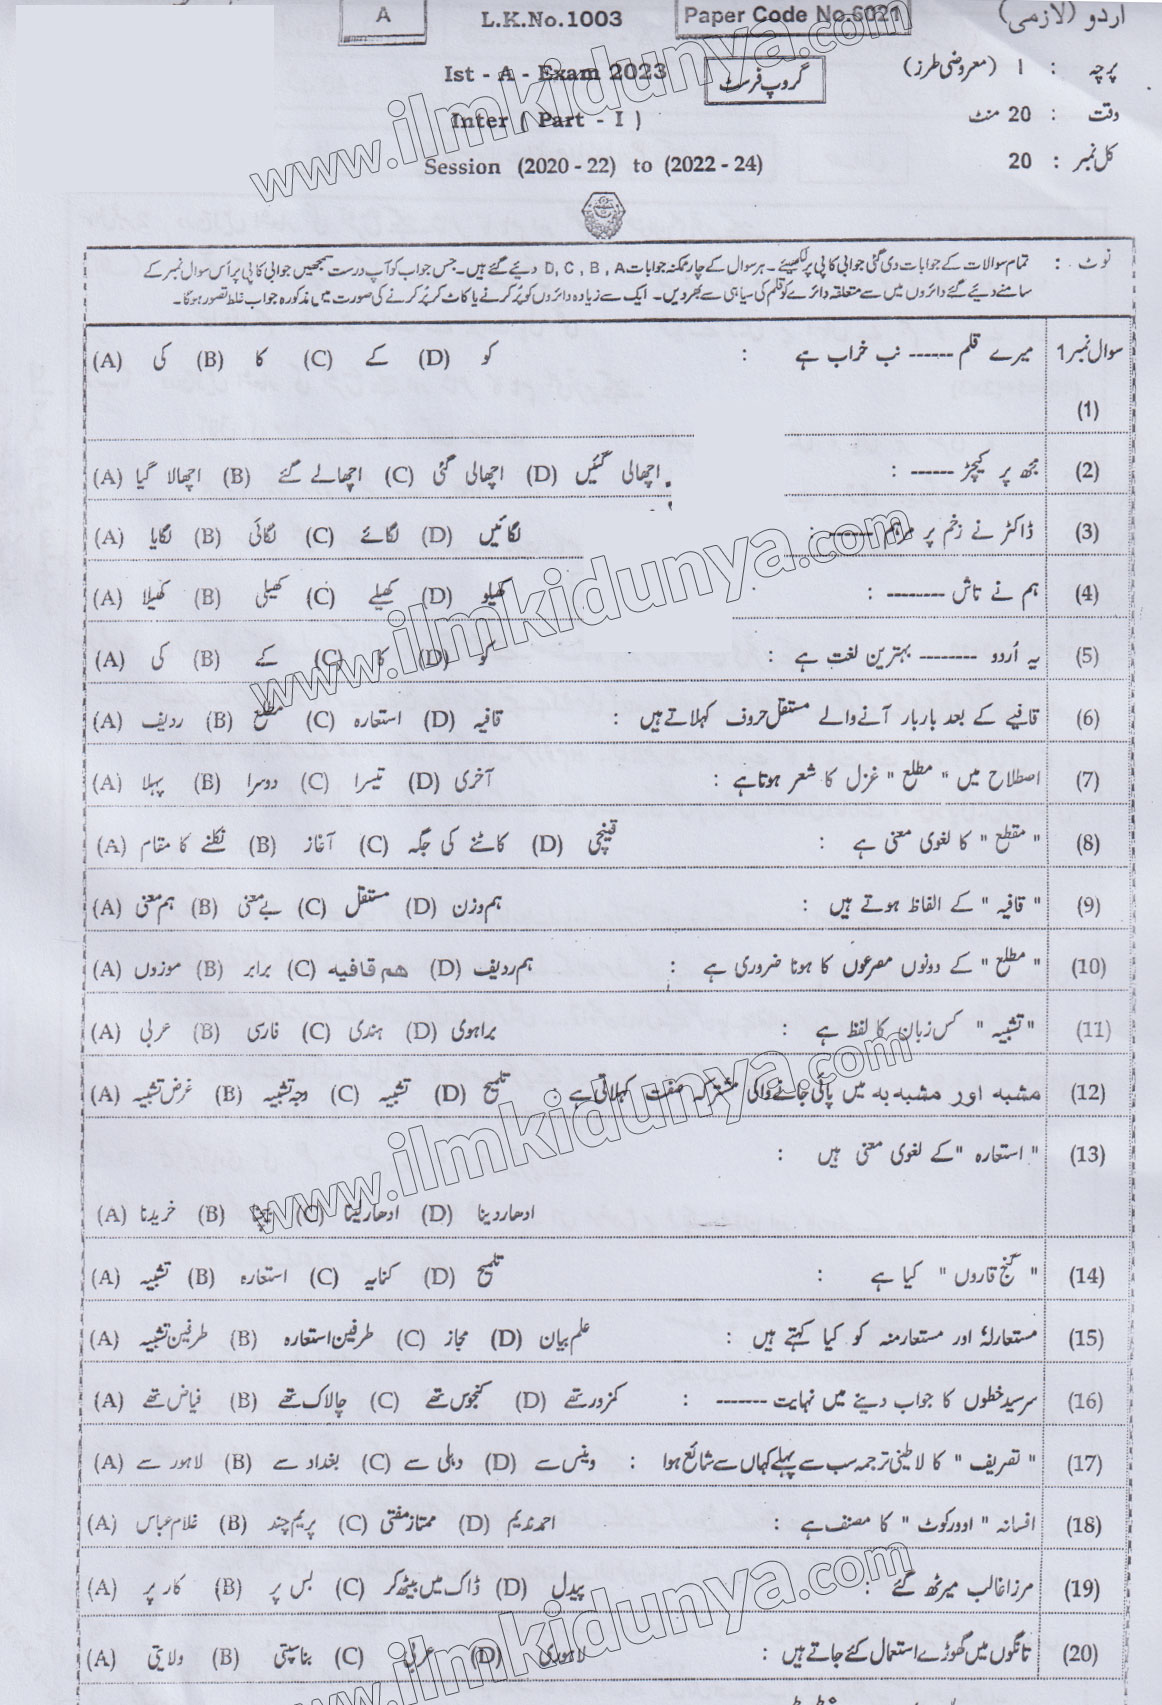 اردو (لازمی) Paper Code No.6021 L.K.No.1003 A
پرچہ : I (معروضی طرز) گروپ فرسٹ Ist - A - Exam 2023
وقت : 20 منٹ Inter ( Part - I )
کل نمبر : 20 Session (2020 - 22) to (2022 - 24)
نوٹ : تمام سوالات کے جوابات دی گئی جوابی کاپی پر لکھیئے۔ ہر سوال کے چار ممکنہ جوابات D, C, B, A دیئے گئے ہیں۔ جس جواب کو آپ درست سمجھیں جوابی کاپی پر اُس سوال نمبر کے
سامنے دیئے گئے دائروں میں سے متعلقہ دائرے کو قلم کی سیاہی سے بھر دیں۔ ایک سے زیادہ دائروں کو پُر کرنے یا کاٹ کر پُر کرنے کی صورت میں مذکورہ جواب غلط تصور ہوگا۔
سوال نمبر 1 میرے قلم ------ نب خراب ہے : (A) کی (B) کا (C) کے (D) کو
(1)
(2) مجھ پر کیچڑ ------ : (A) اچھالا گیا (B) اچھالے گئے (C) اچھالی گئی (D) اچھالی گئیں
(3) ڈاکٹر نے زخم پر مرہم ------ : (A) لگایا (B) لگائی (C) لگائے (D) لگائیں
(4) ہم نے تاش -------- : (A) کھیلا (B) کھیلی (C) کھیلے (D) کھیلو
(5) یہ اُردو -------- بہترین لغت ہے : (A) کی (B) کے (C) کا (D) کو
(6) قافیے کے بعد بار بار آنے والے مستقل حروف کہلاتے ہیں : (A) ردیف (B) مطلع (C) استعارہ (D) قافیہ
(7) اصطلاح میں " مطلع " غزل کا شعر ہوتا ہے : (A) پہلا (B) دوسرا (C) تیسرا (D) آخری
(8) " مقطع " کا لغوی معنی ہے : (A) نکلنے کا مقام (B) آغاز (C) کاٹنے کی جگہ (D) قینچی
(9) " قافیہ " کے الفاظ ہوتے ہیں : (A) ہم معنی (B) بے معنی (C) مستقل (D) ہم وزن
(10) " مطلع " کے دونوں مصرعوں کا ہونا ضروری ہے : (A) موزوں (B) برابر (C) ہم قافیہ (D) ہم ردیف
(11) " تشبیہ " کس زبان کا لفظ ہے : (A) عربی (B) فارسی (C) ہندی (D) براہوی
(12) مشبہ اور مشبہ بہ میں پائی جانے والی مشترکہ صفت کہلاتی ہے : (A) غرض تشبیہ (B) وجہ تشبیہ (C) تشبیہ (D) تلمیح
(13) " استعارہ " کے لغوی معنی ہیں :
(A) خریدنا (B) بیچنا (C) ادھار لینا (D) ادھار دینا
(14) " گنج قاروں " کیا ہے : (A) تشبیہ (B) استعارہ (C) کنایہ (D) تلمیح
(15) مستعارلہٗ اور مستعارمنہ کو کیا کہتے ہیں : (A) طرفین تشبیہ (B) طرفین استعارہ (C) مجاز (D) علم بیان
(16) سرسید خطوں کا جواب دینے میں نہایت ------- : (A) فیاض تھے (B) چالاک تھے (C) کنجوس تھے (D) کمزور تھے
(17) " تصریف " کا لاطینی ترجمہ سب سے پہلے کہاں سے شائع ہوا : (A) لاہور سے (B) بغداد سے (C) دہلی سے (D) وینس سے
(18) افسانہ " اوورکوٹ " کا مصنف ہے : (A) غلام عباس (B) پریم چند (C) ممتاز مفتی (D) احمد ندیم
(19) مرزا غالب میرٹھ گئے : (A) کار پر (B) بس پر (C) ڈاک میں بیٹھ کر (D) پیدل
(20) تانگوں میں گھوڑے استعمال کئے جاتے ہیں : (A) ولایتی (B) بناسپتی (C) عربی (D) لاہوری
www.ilmkidunya.com
www.ilmkidunya.com
www.ilmkidunya.com
www.ilmkidunya.com